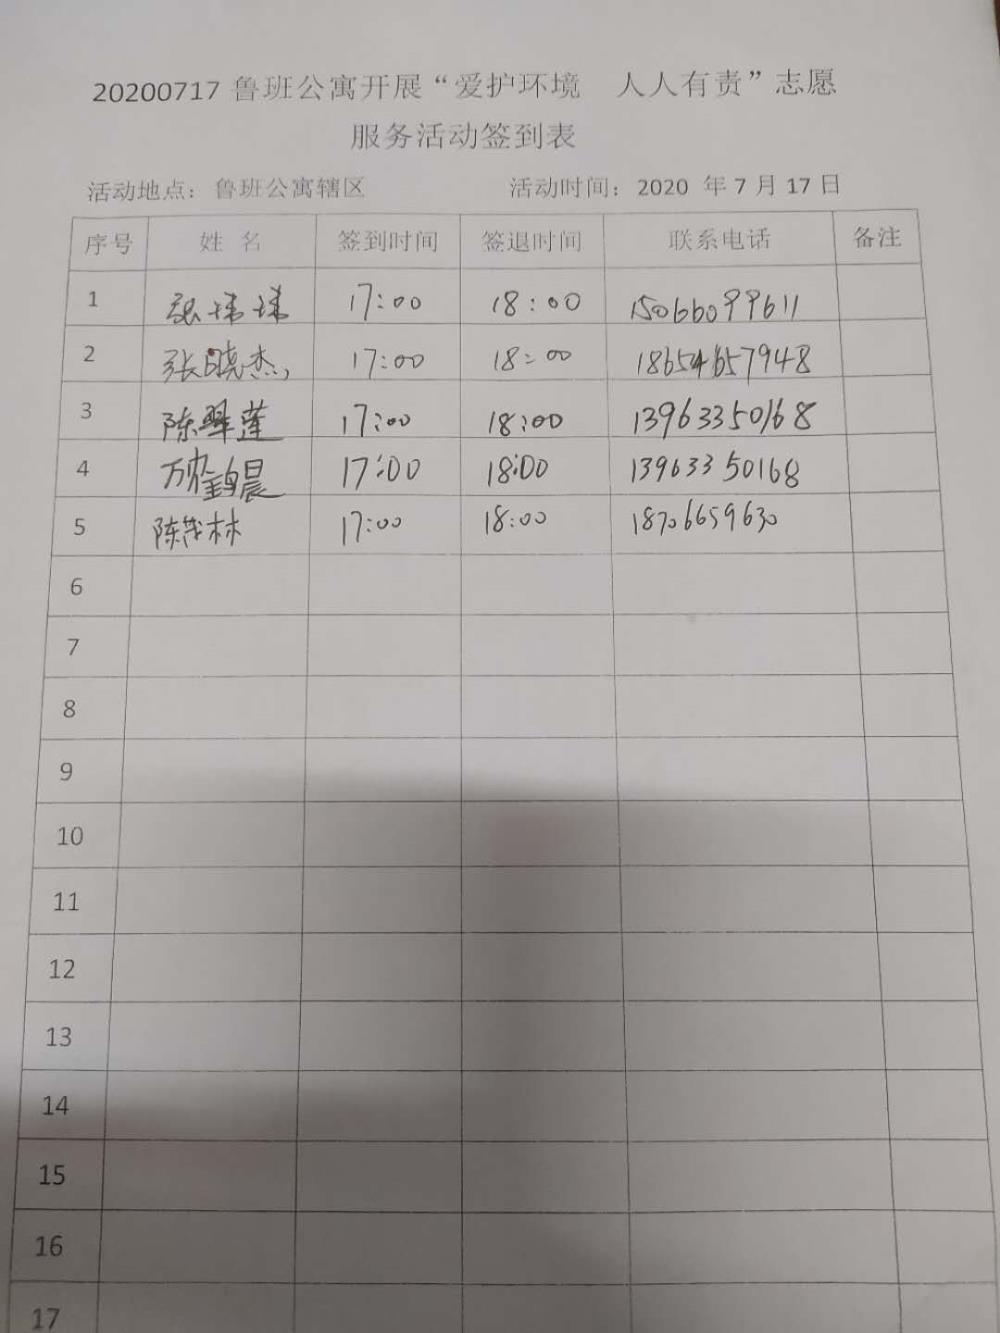 20200717 鲁班公寓开展“爱护环境 人人有责”志愿
服务活动签到表
活动地点：鲁班公寓辖区 活动时间：2020 年 7 月 17 日
序号 姓 名 签到时间 签退时间 联系电话 备注
1 张 17:00 18:00 15066099611
2 张晓杰 17:00 18:00 18654657948
3 陈翠莲 17:00 18:00 13963350168
4 万 晨 17:00 18:00 13963350168
5 陈茂林 17:00 18:00 18706659630
6
7
8
9
10
11
12
13
14
15
16
17